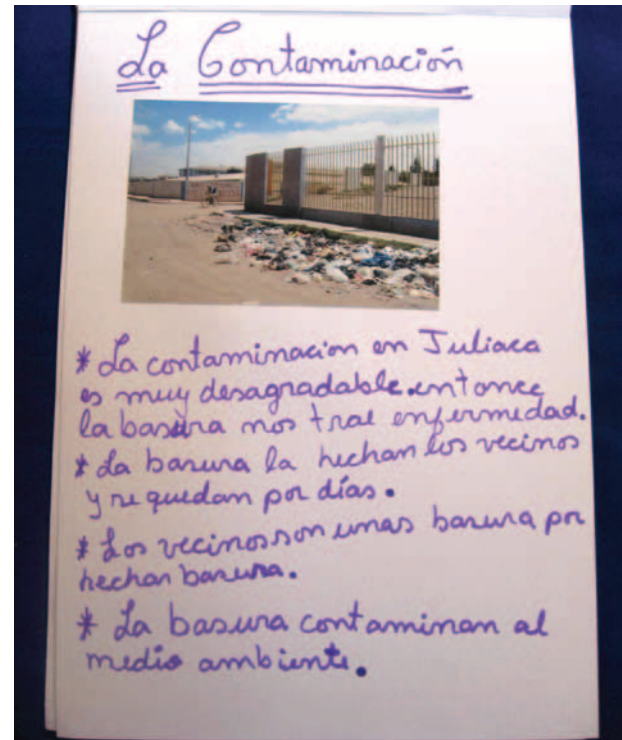 La Contaminación
* La contaminacion en Juliaca
es muy desagradable. entonce
la basura nos trae enfermedad.
* La basura la hechan los vecinos
y se quedan por días.
* Los vecinos son unas basura por
hechan basura.
* La basura contaminan al
medio ambiente.